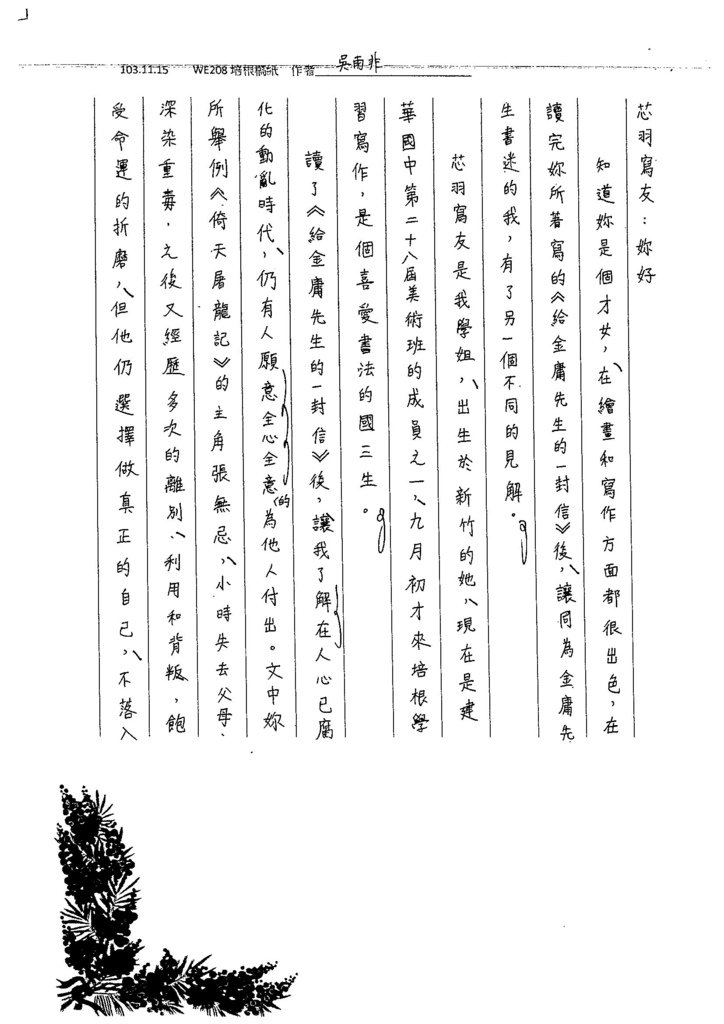 103.11.15 WE208 培根稿紙 作者 吳雨非
芯羽寫友：妳好
知道妳是個才女，在繪畫和寫作方面都很出色，在
讀完妳所著寫的《給金庸先生的一封信》後，讓同為金庸先
生書迷的我，有了另一個不同的見解。
芯羽寫友是我學姐，出生於新竹的她，現在是建
華國中第二十八屆美術班的成員之一，九月初才來培根學
習寫作，是個喜愛書法的國三生。
讀了《給金庸先生的一封信》後，讓我了解在人心已腐
化的動亂時代，仍有人願意全心全意的為他人付出。文中妳
所舉例《倚天屠龍記》的主角張無忌，小時失去父母、
深染重毒，之後又經歷多次的離別、利用和背叛，飽
受命運的折磨，但他仍選擇做真正的自己，不落入